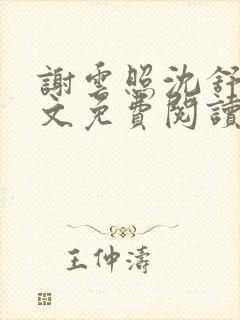 謝雲照沈舒
文免費閱讀
王仲濤